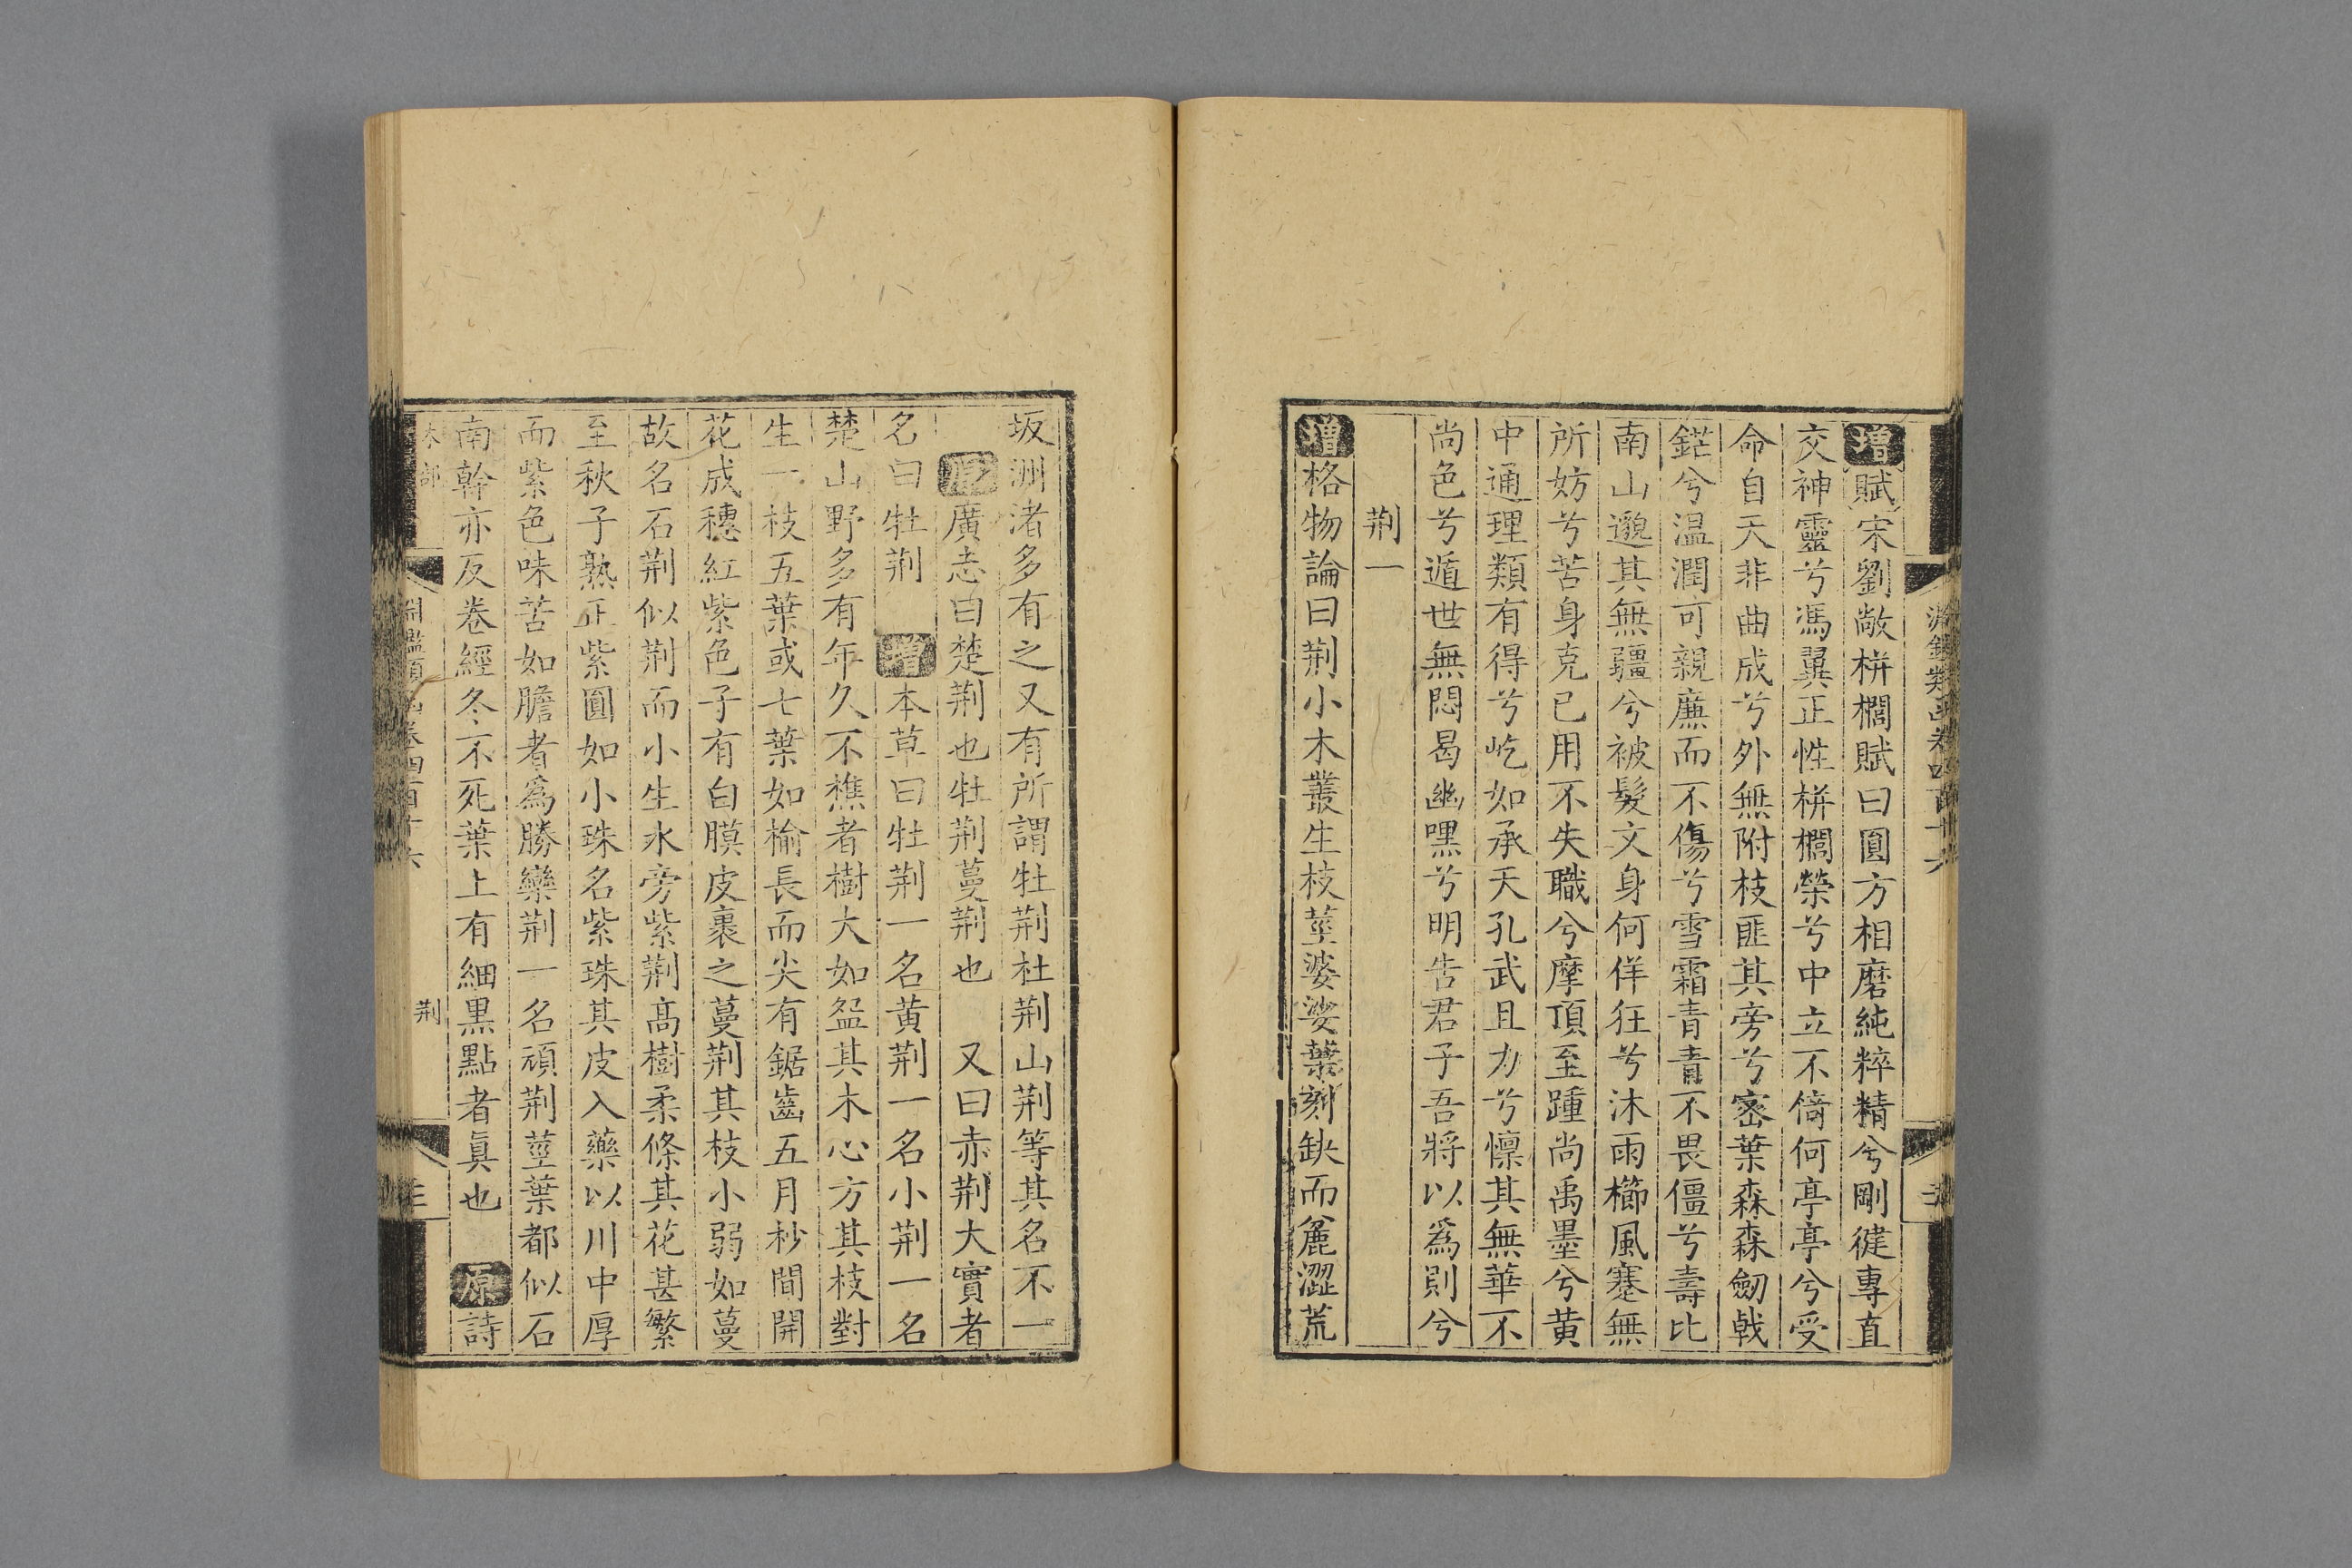 增賦宋劉敞栟櫚賦曰圓方相磨純粹精兮剛健專直
交神靈兮馮翼正性栟櫚榮兮中立不倚何亭亭兮受
命自天非曲成兮外無附枝匪其旁兮密葉森森劒戟
鋩兮温潤可親廉而不傷兮雪霜青青不畏僵兮壽比
南山邈其無疆兮被髮文身何佯狂兮沐雨櫛風蹇無
所妨兮苦身克已用不失職兮摩頂至踵尚禹墨兮黄
中通理類有得兮屹如承天孔武且力兮懔其無華不
尚色兮遁世無悶曷幽嘿兮明告君子吾將以爲則兮
荆一
增格物論曰荆小木叢生枝莖婆娑葉刻缺而麄澀荒
坂洲渚多有之又有所謂牡荆杜荆山荆等其名不一
原廣志曰楚荆也牡荆蔓荆也 又曰赤荆大實者
名曰牡荆 增本草曰牡荆一名黄荆一名小荆一名
楚山野多有年久不樵者樹大如盌其木心方其枝對
生一枝五葉或七葉如榆長而尖有鋸齒五月杪間開
花成穗紅紫色子有白膜皮裹之蔓荆其枝小弱如蔓
故名石荆似荆而小生水旁紫荆髙樹柔條其花甚繁
至秋子熟正紫圓如小珠名紫珠其皮入藥以川中厚
而紫色味苦如膽者爲勝欒荆一名頑荆莖葉都似石
南幹亦反卷經冬不死葉上有細黒點者眞也 原詩
木部 淵鑑類函卷四百十六 荆